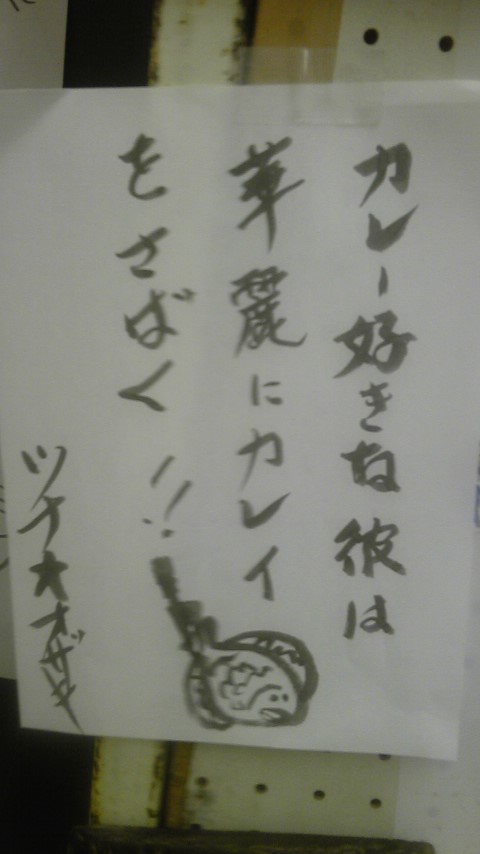 カレー好きな彼は
華麗にカレイ
をさばく!!
ツナ★オザキ